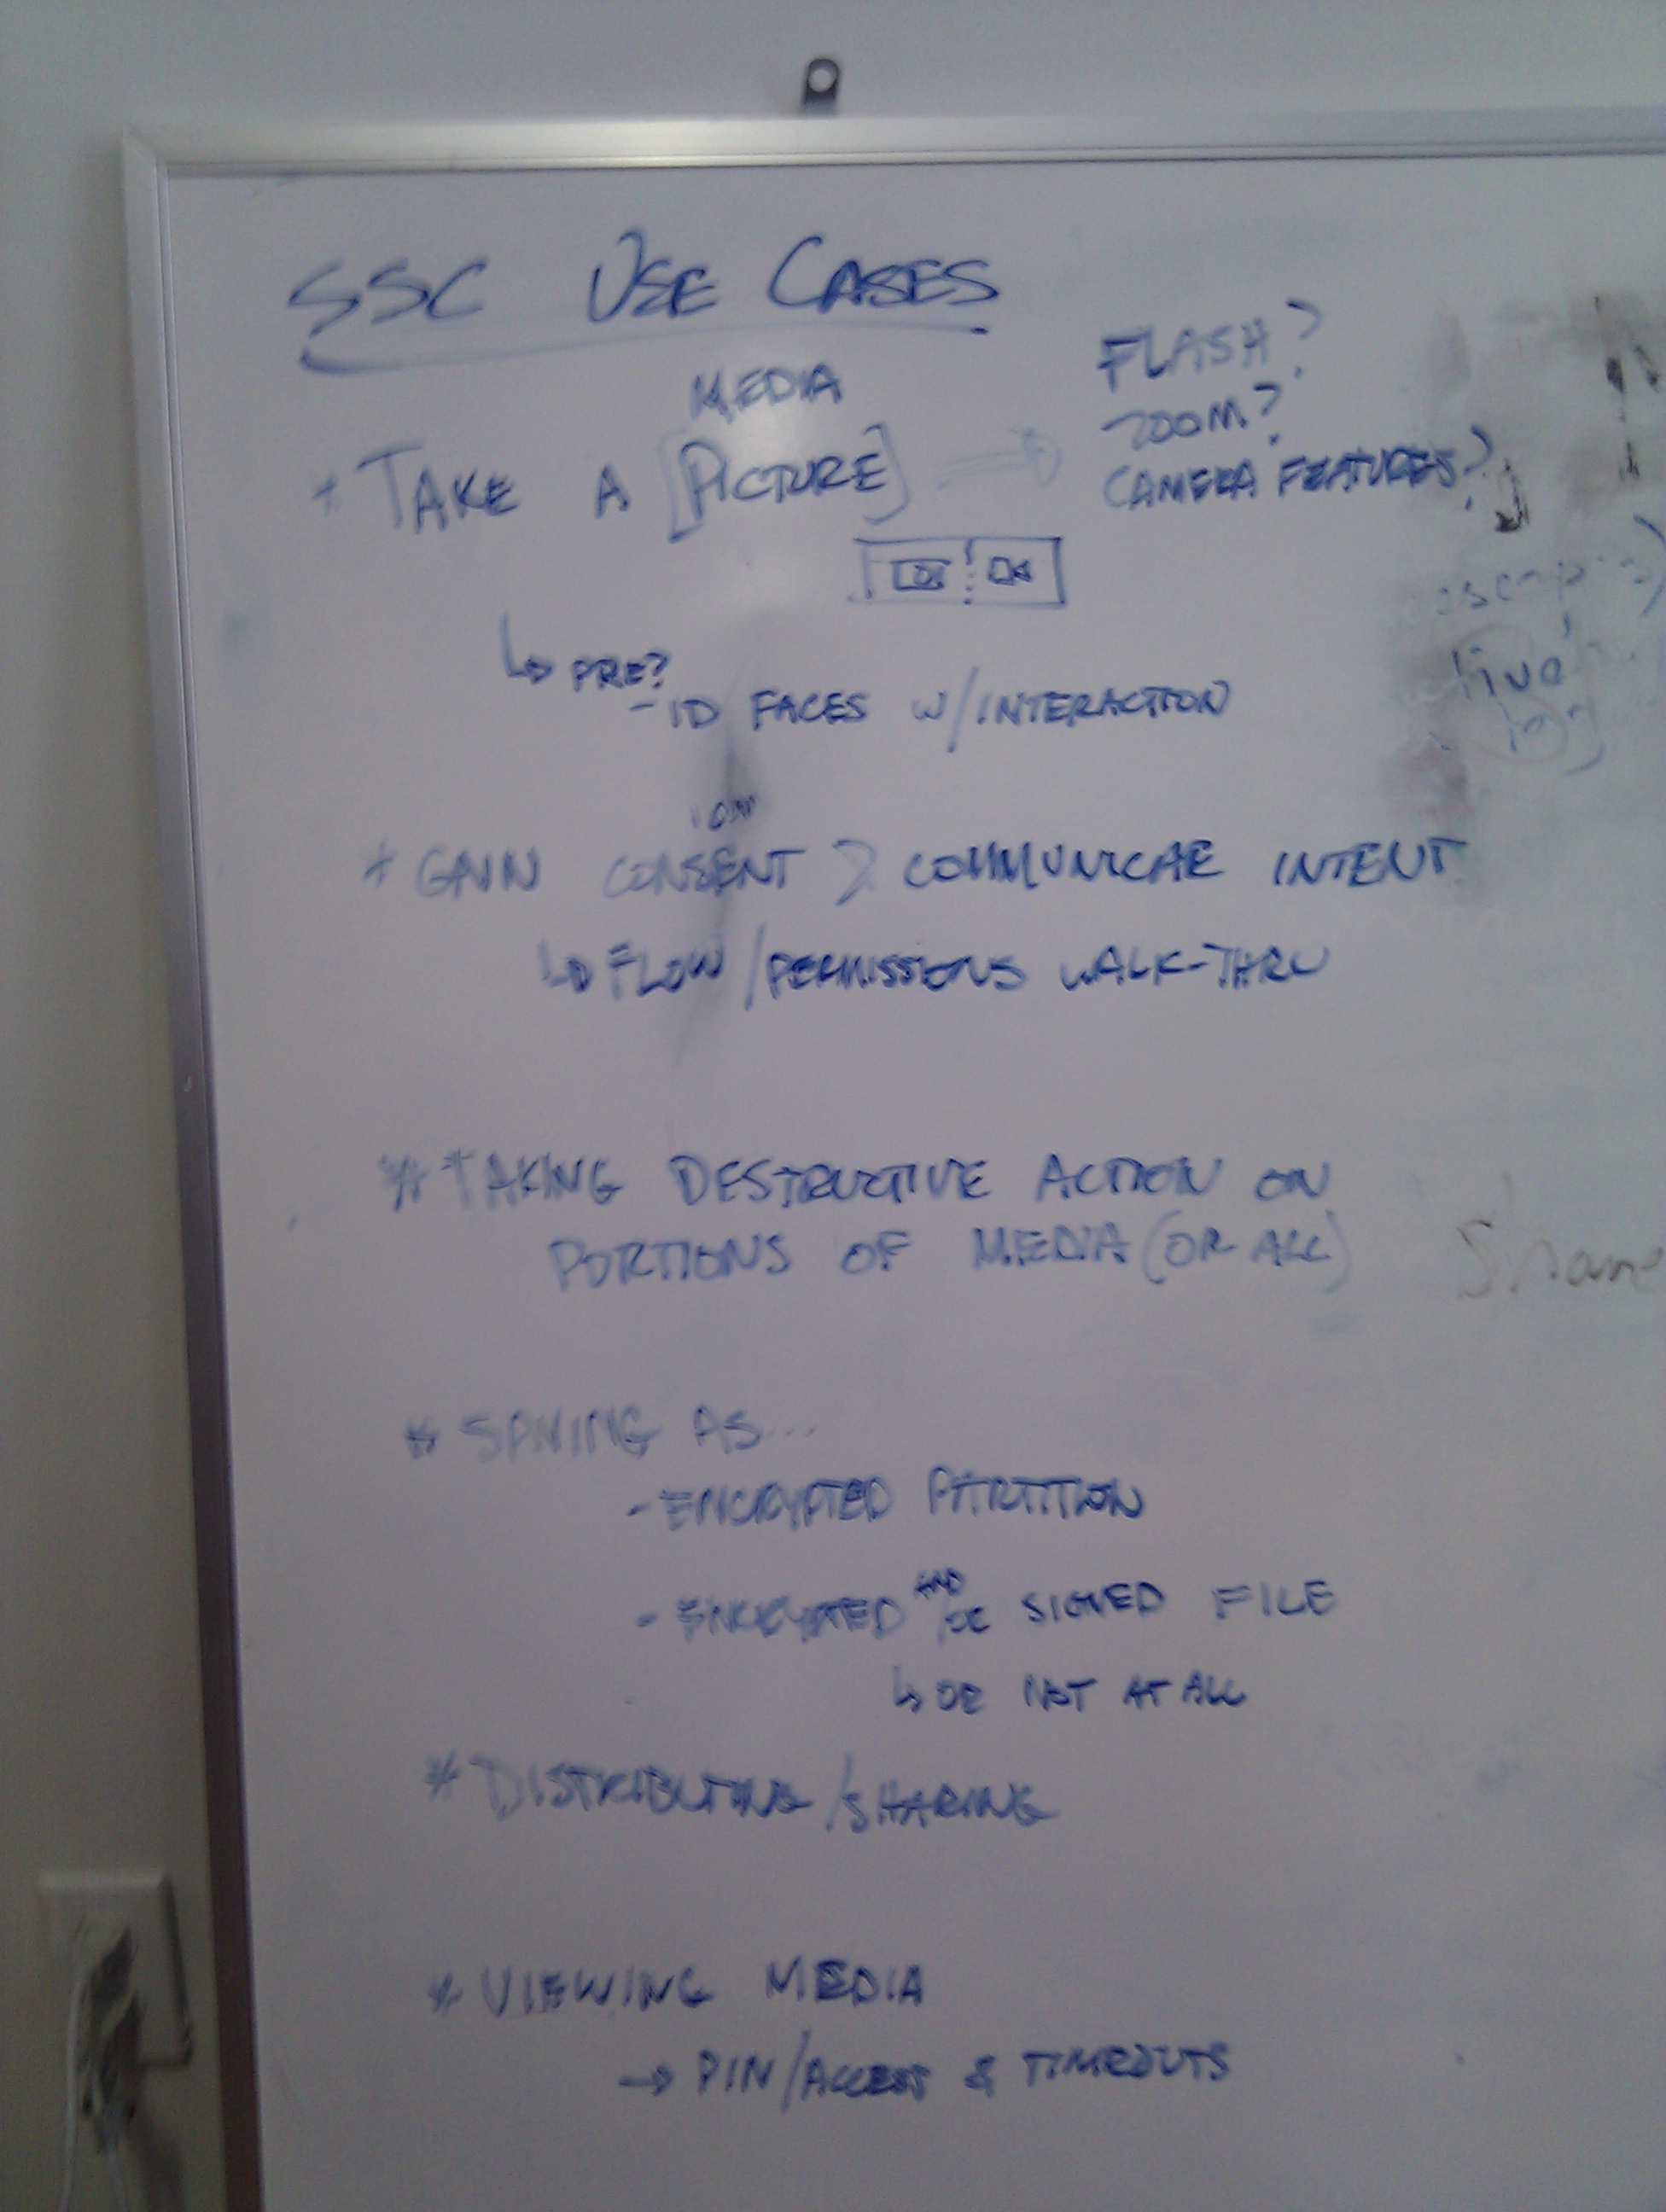 SSC USE CASES
MEDIA
* TAKE A [PICTURE] ⇒
FLASH?
ZOOM?
CAMERA FEATURES?
↳ PRE?
- ID FACES W/INTERACTION
* GAIN CONSENT > COMMUNICAE INTENT
↳ FLOW/PERMISSIONS WALK-THRU
* TAKING DESTRUCTIVE ACTION ON
PORTIONS OF MEDIA (OR ALL)
Share
* SAVING AS...
- ENCRYPTED PARTITION
- ENCRYPTED AND/OR SIGNED FILE
↳ OR NOT AT ALL
* DISTRIBUTING/SHARING
* VIEWING MEDIA
→ PIN/ACCESS & TIMEOUTS
live